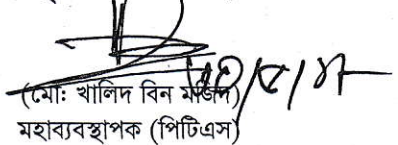 (মো: খালিদ বিন মজিদ)
মহাব্যবস্থাপক (পিটিএস)